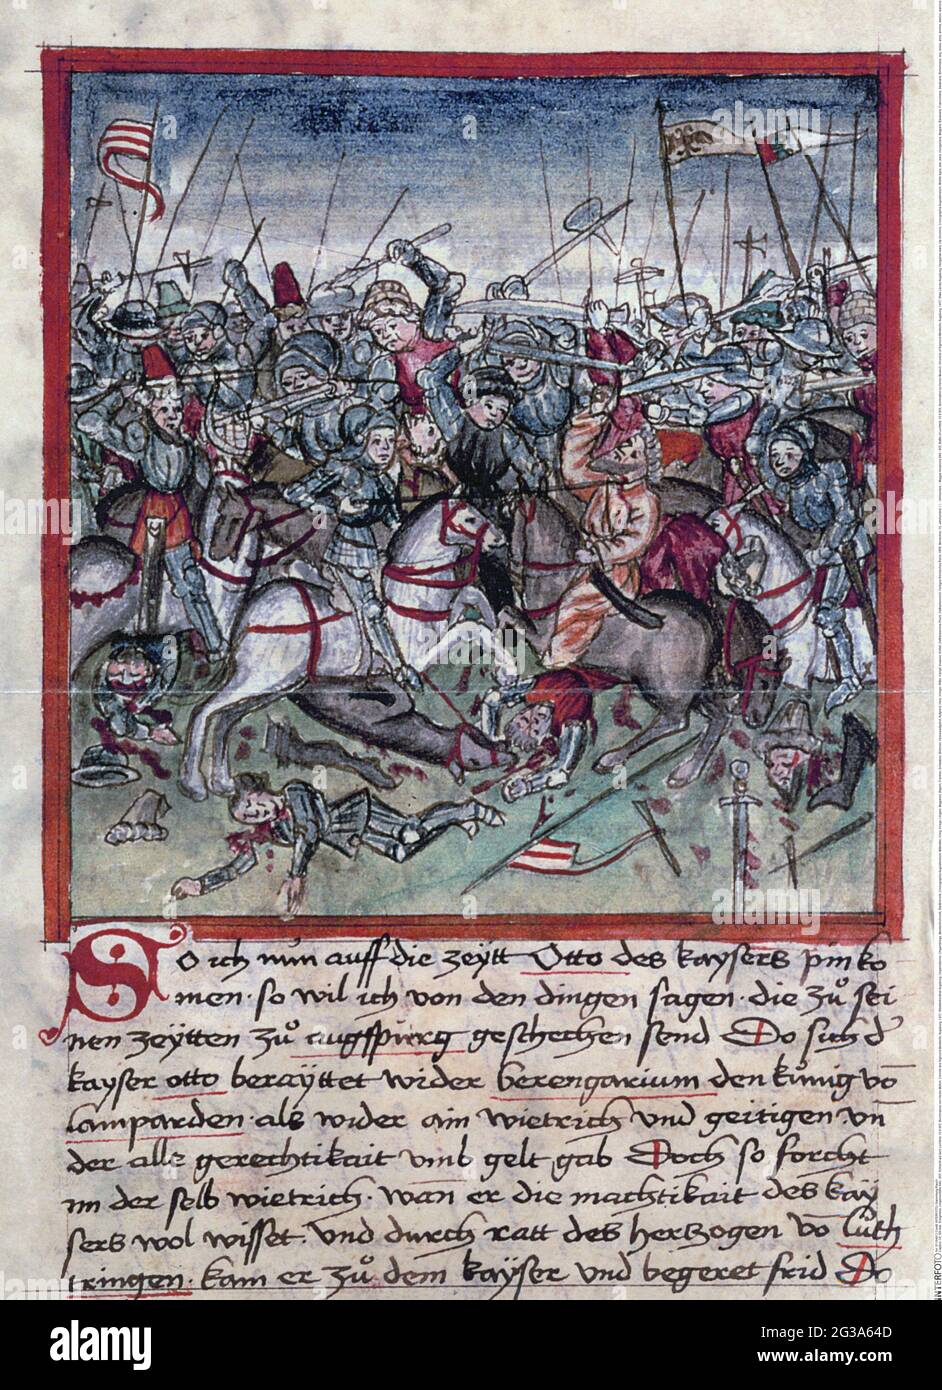 So ich nun auff die zeytt Otto des kaysers pin ko
men · so wil ich von den dingen sagen · die zů sei
nen zeytten zů augspurg geschechen send Do sich d'
kayser otto berayttet wider berengarium den kůnig vō
lamparden · als wider ain wietrich und geitigen · vn
der alle gerechtikait umb gelt gab Doch so forcht
im der selb wietrich · wan er die machtikait des kay
sers wol wisset · und durch ratt des herzogen vō luth
tringen · kam er zů dem kayser und begeret frid Do
alamy
Image ID: 2G3A64D
www.alamy.com
INTERFOTO